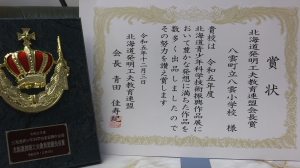 賞状
北海道発明工夫教育連盟会長賞
八雲町立八雲小学校 様
貴校は 令和五年度
北海道青少年科学技術振興作品展に
おいて豊かな発想に満ちた作品を
数多く出品しましたので
その努力を讃え賞します
令和五年十二月二日
北海道発明工夫教育連盟
会長 青田 佳寿紀